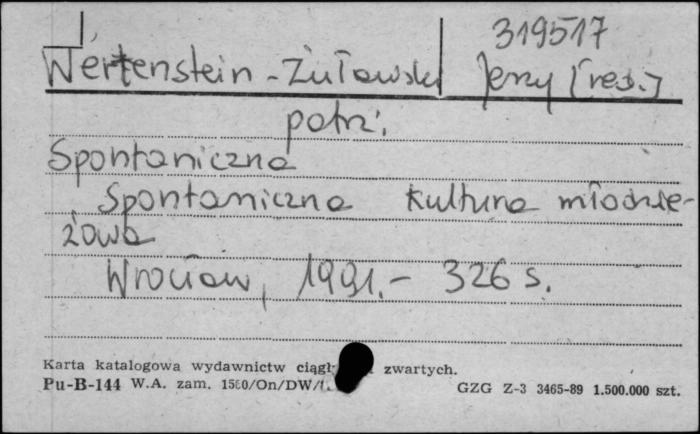 319517
Wertenstein-Żuławski Jerzy [red.]
patrz:
Spontaniczna
Spontaniczna kultura młodzie-
żowa
Wrocław, 1991.- 326 s.
Karta katalogowa wydawnictw ciągł zwartych.
Pu-B-144 W.A. zam. 1560/On/DW/
GZG Z-3 3465-89 1.500.000 szt.